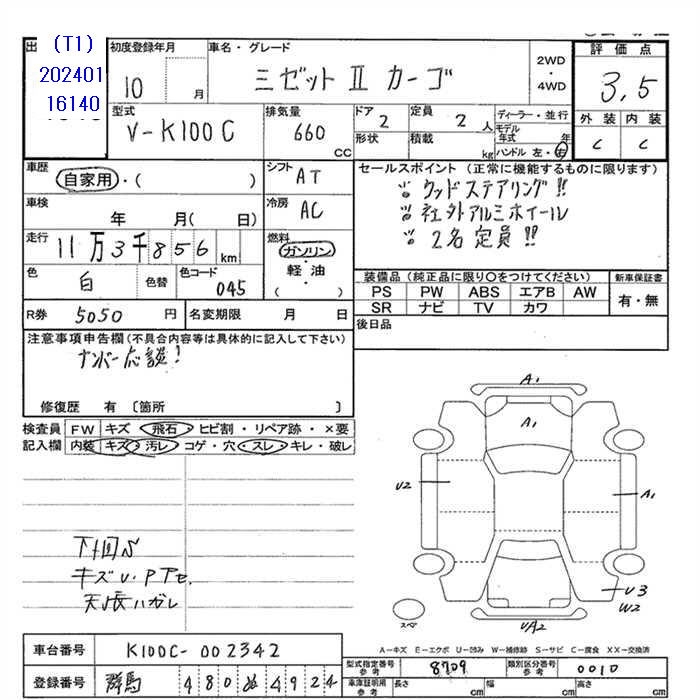 出 (T1) 初度登録年月 車名・グレード 評価点
202401 10 月 ミゼット Ⅱ カーゴ 2WD・4WD 3,5
16140
型式 排気量 ドア 定員 ディーラー・並行 外装 内装
V-K100C 660 CC 2 2 人 モデル年式 年 C C
形状 積載 kg ハンドル 左・右
車歴 自家用・( ) シフト AT セールスポイント (正常に機能するものに限ります)
ウッドステアリング!!
車検 年 月( 日) 冷房 AC 社外アルミホイール
走行 11万3千856km 燃料 ガソリン・軽油 ( ) 2名定員!!
色 白 色替 色コード 045 装備品(純正品に限り○をつけてください) 新車保証書
PS PW ABS エアB AW 有・無
SR ナビ TV カワ
R券 5050 円 名変期限 月 日 後日品
注意事項申告欄(不具合内容等は具体的に記入して下さい)
ナンバー応談!
修復歴 有 〔箇所 〕
検査員 FW キズ・飛石・ヒビ割・リペア跡・×要
記入欄 内装 キズ・汚レ・コゲ・穴・スレ・キレ・破レ
A1
A1
U2
A1
U3
W2
UA2
スペ
下回S
キズU.P下セ.
天張ハガレ
A-キズ E-エクボ U-凹み W-補修跡 S-サビ C-腐食 XX-交換済
車台番号 K100C-002342
型式指定番号 参考 8709 類別区分番号 参考 0010
登録番号 群馬 480 ぬ 4924
車庫証明用 参考 長さ cm 幅 cm 高さ cm